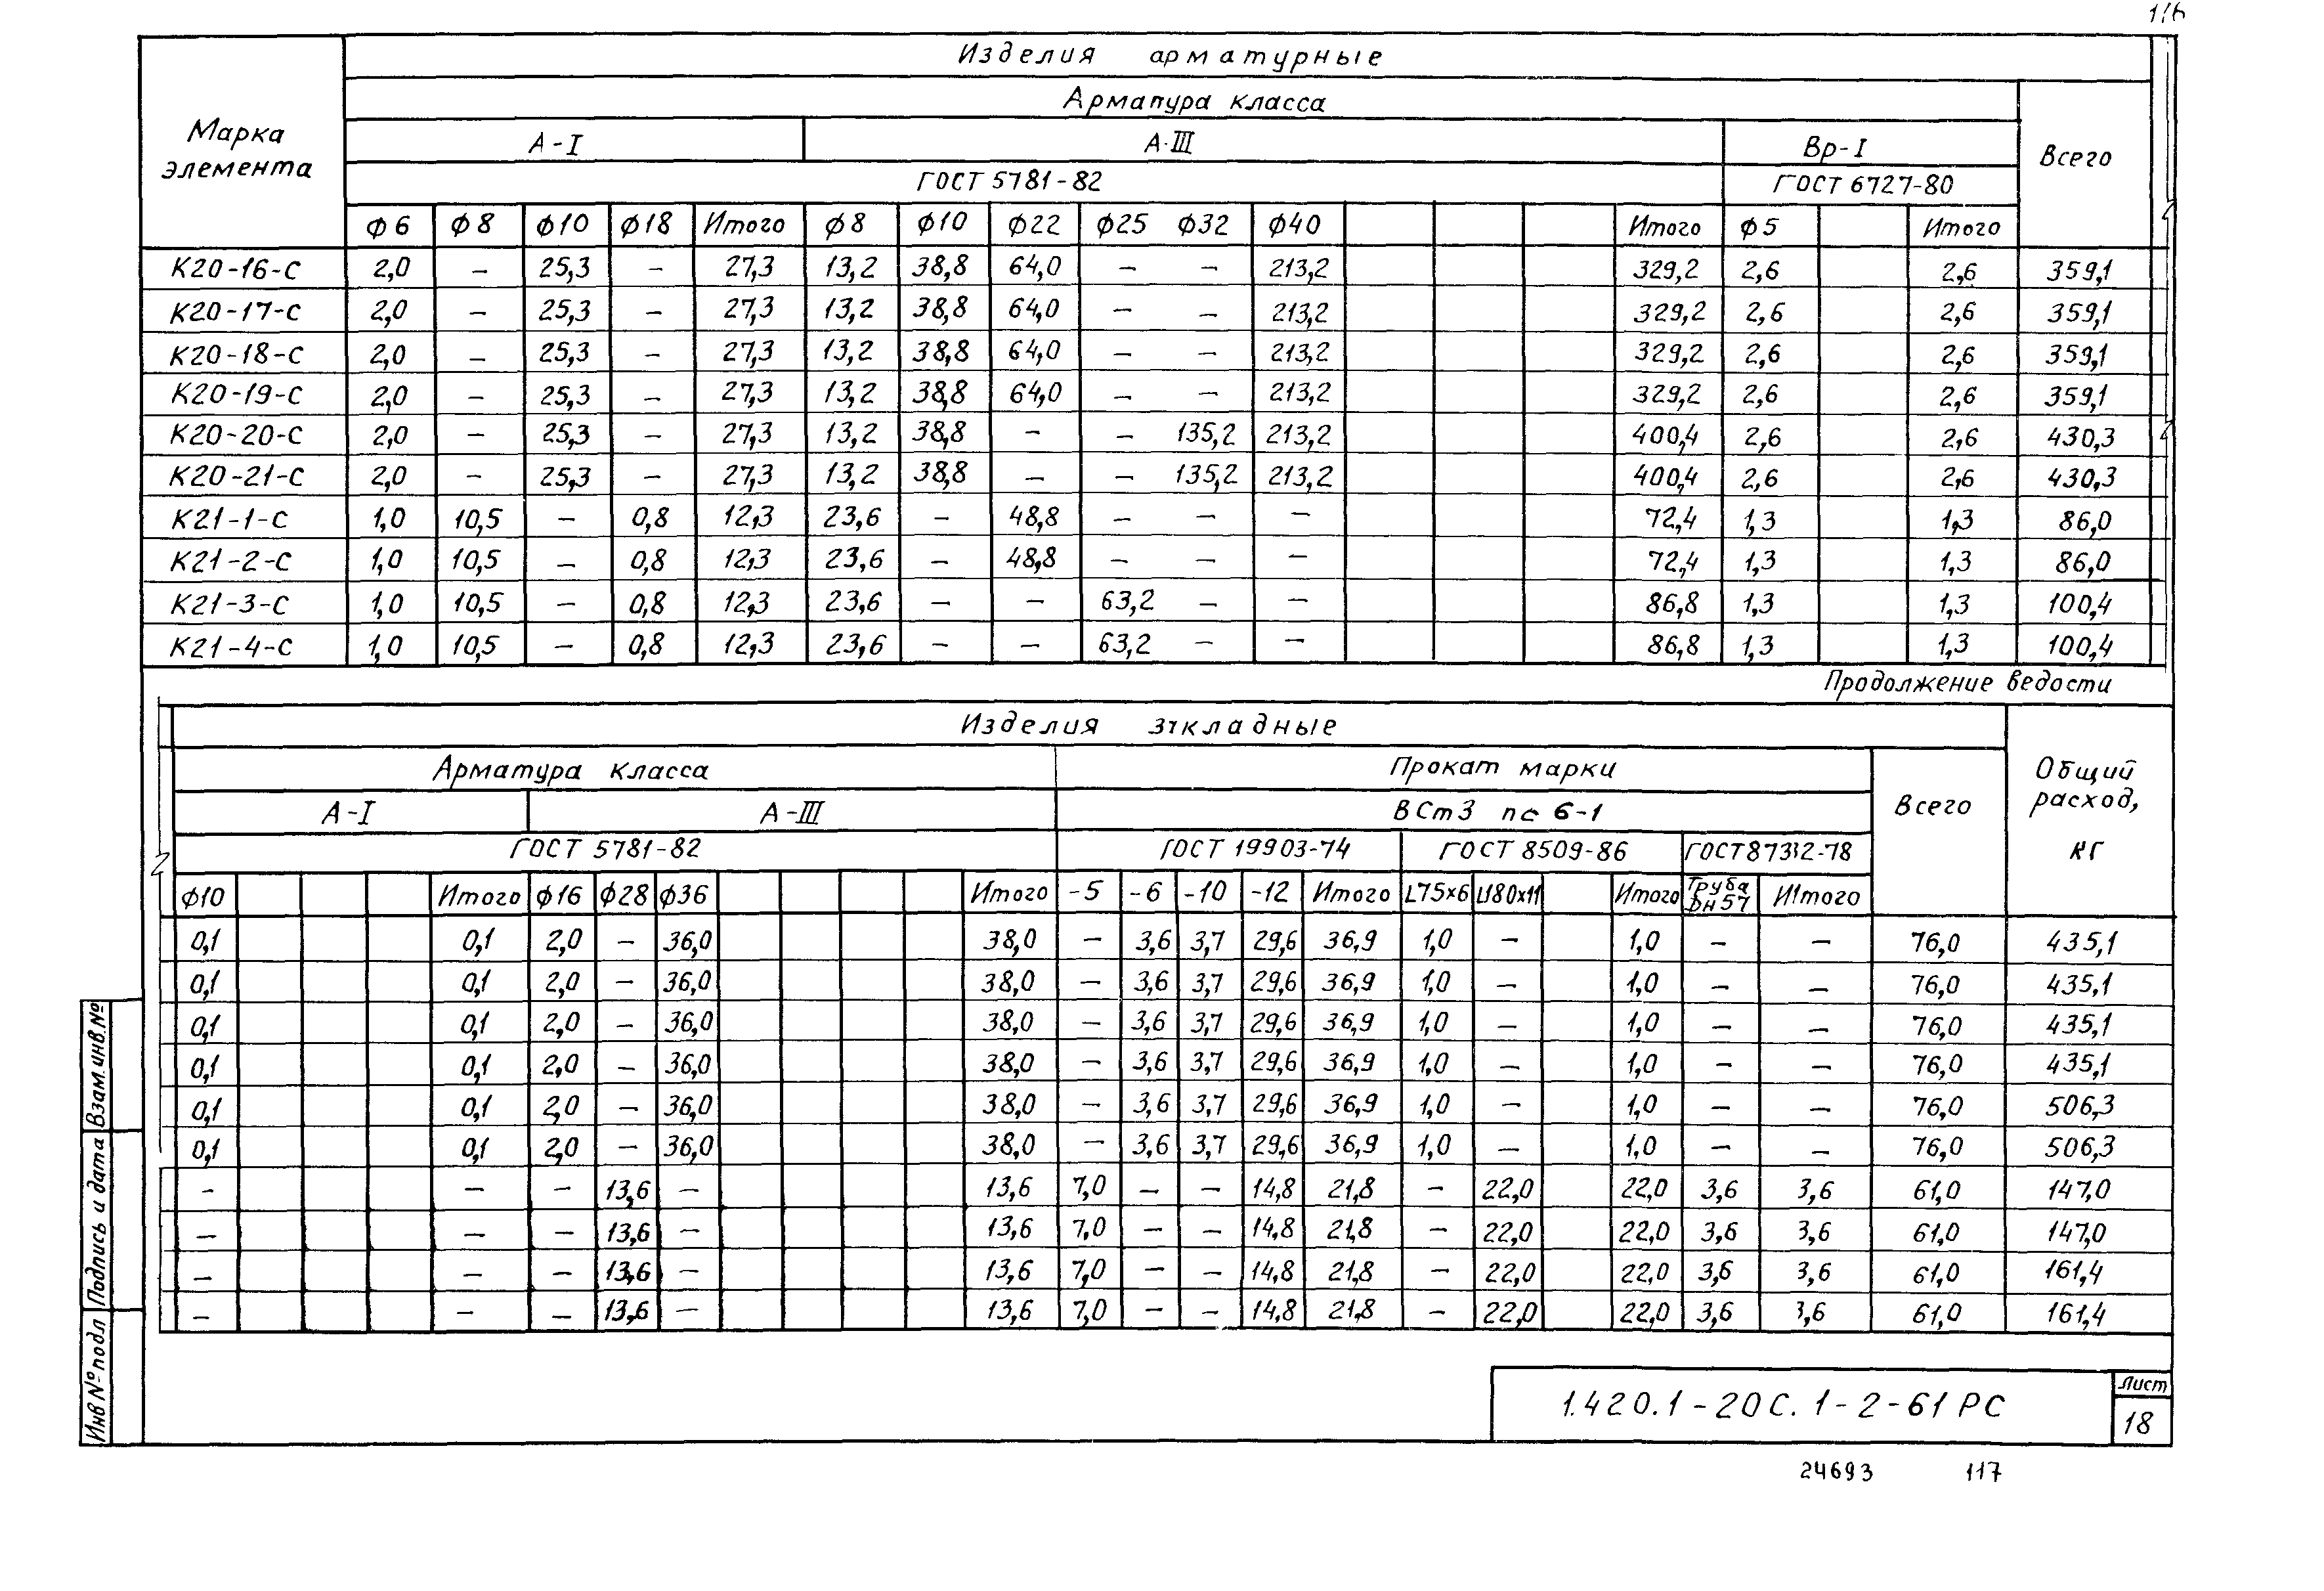 Изделия арматурные
Марка элемента
Арматура класса
Всего
А-I А-III Вр-I
ГОСТ 5781-82 ГОСТ 6727-80
Ф6 Ф8 Ф10 Ф18 Итого Ф8 Ф10 Ф22 Ф25 Ф32 Ф40 Итого Ф5 Итого
К20-16-С 2,0 – 25,3 – 27,3 13,2 38,8 64,0 – – 213,2 329,2 2,6 2,6 359,1
К20-17-С 2,0 – 25,3 – 27,3 13,2 38,8 64,0 – – 213,2 329,2 2,6 2,6 359,1
К20-18-С 2,0 – 25,3 – 27,3 13,2 38,8 64,0 – – 213,2 329,2 2,6 2,6 359,1
К20-19-С 2,0 – 25,3 – 27,3 13,2 38,8 64,0 – – 213,2 329,2 2,6 2,6 359,1
К20-20-С 2,0 – 25,3 – 27,3 13,2 38,8 – – 135,2 213,2 400,4 2,6 2,6 430,3
К20-21-С 2,0 – 25,3 – 27,3 13,2 38,8 – – 135,2 213,2 400,4 2,6 2,6 430,3
К21-1-С 1,0 10,5 – 0,8 12,3 23,6 – 48,8 – – – 72,4 1,3 1,3 86,0
К21-2-С 1,0 10,5 – 0,8 12,3 23,6 – 48,8 – – – 72,4 1,3 1,3 86,0
К21-3-С 1,0 10,5 – 0,8 12,3 23,6 – – 63,2 – – 86,8 1,3 1,3 100,4
К21-4-С 1,0 10,5 – 0,8 12,3 23,6 – – 63,2 – – 86,8 1,3 1,3 100,4
Продолжение ведости
Изделия закладные
Общий расход, кг
Арматура класса Прокат марки
Всего
А-I А-III ВСт3 пс 6-1
ГОСТ 5781-82 ГОСТ 19903-74 ГОСТ 8509-86 ГОСТ 8732-78
Ф10 Итого Ф16 Ф28 Ф36 Итого -5 -6 -10 -12 Итого L75x6 Итого Труба Dн57 Итого
0,1 0,1 2,0 – 36,0 38,0 – 3,6 3,7 29,6 36,9 1,0 – 1,0 – – 76,0 435,1
0,1 0,1 2,0 – 36,0 38,0 – 3,6 3,7 29,6 36,9 1,0 – 1,0 – – 76,0 435,1
0,1 0,1 2,0 – 36,0 38,0 – 3,6 3,7 29,6 36,9 1,0 – 1,0 – – 76,0 435,1
0,1 0,1 2,0 – 36,0 38,0 – 3,6 3,7 29,6 36,9 1,0 – 1,0 – – 76,0 435,1
0,1 0,1 2,0 – 36,0 38,0 – 3,6 3,7 29,6 36,9 1,0 – 1,0 – – 76,0 506,3
0,1 0,1 2,0 – 36,0 38,0 – 3,6 3,7 29,6 36,9 1,0 – 1,0 – – 76,0 506,3
– – – 13,6 – 13,6 7,0 – – 14,8 21,8 – 22,0 22,0 3,6 3,6 61,0 147,0
– – – 13,6 – 13,6 7,0 – – 14,8 21,8 – 22,0 22,0 3,6 3,6 61,0 147,0
– – – 13,6 – 13,6 7,0 – – 14,8 21,8 – 22,0 22,0 3,6 3,6 61,0 161,4
– – – 13,6 – 13,6 7,0 – – 14,8 21,8 – 22,0 22,0 3,6 3,6 61,0 161,4
Взам. инв. №
Подпись и дата
Инв № подл
1.420.1-20С.1-2-61РС
Лист
18
24693 117